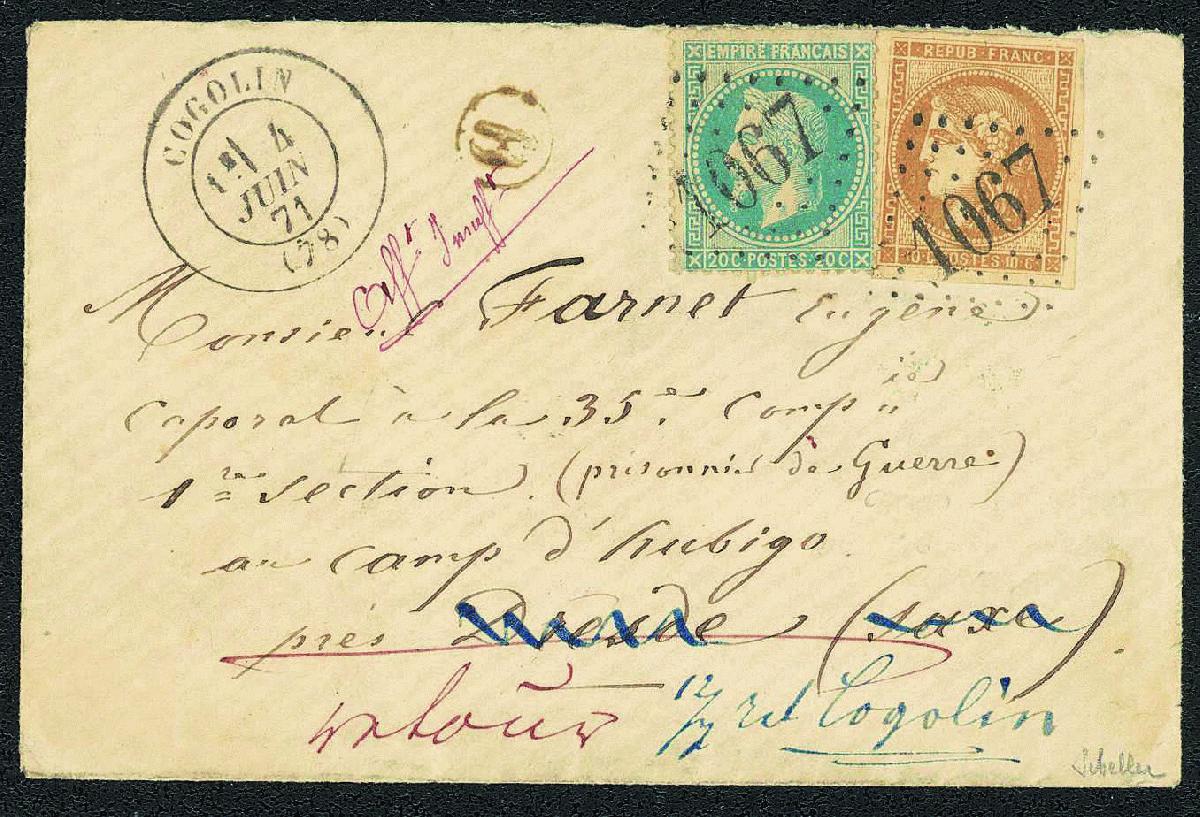 COGOLIN
4
JUIN
71
(78)
EMPIRE FRANCAIS
20C POSTES 20C
1067
REPUB FRANC
POSTES
1067
Afft. Insufft
Monsieur Farnet Eugène
Caporal à la 35e Compie
1re Section (prisonnier de Guerre)
au camp d'hubigo
près Dresde (Saxe)
retour 12/7 rd Cogolin
Scheller